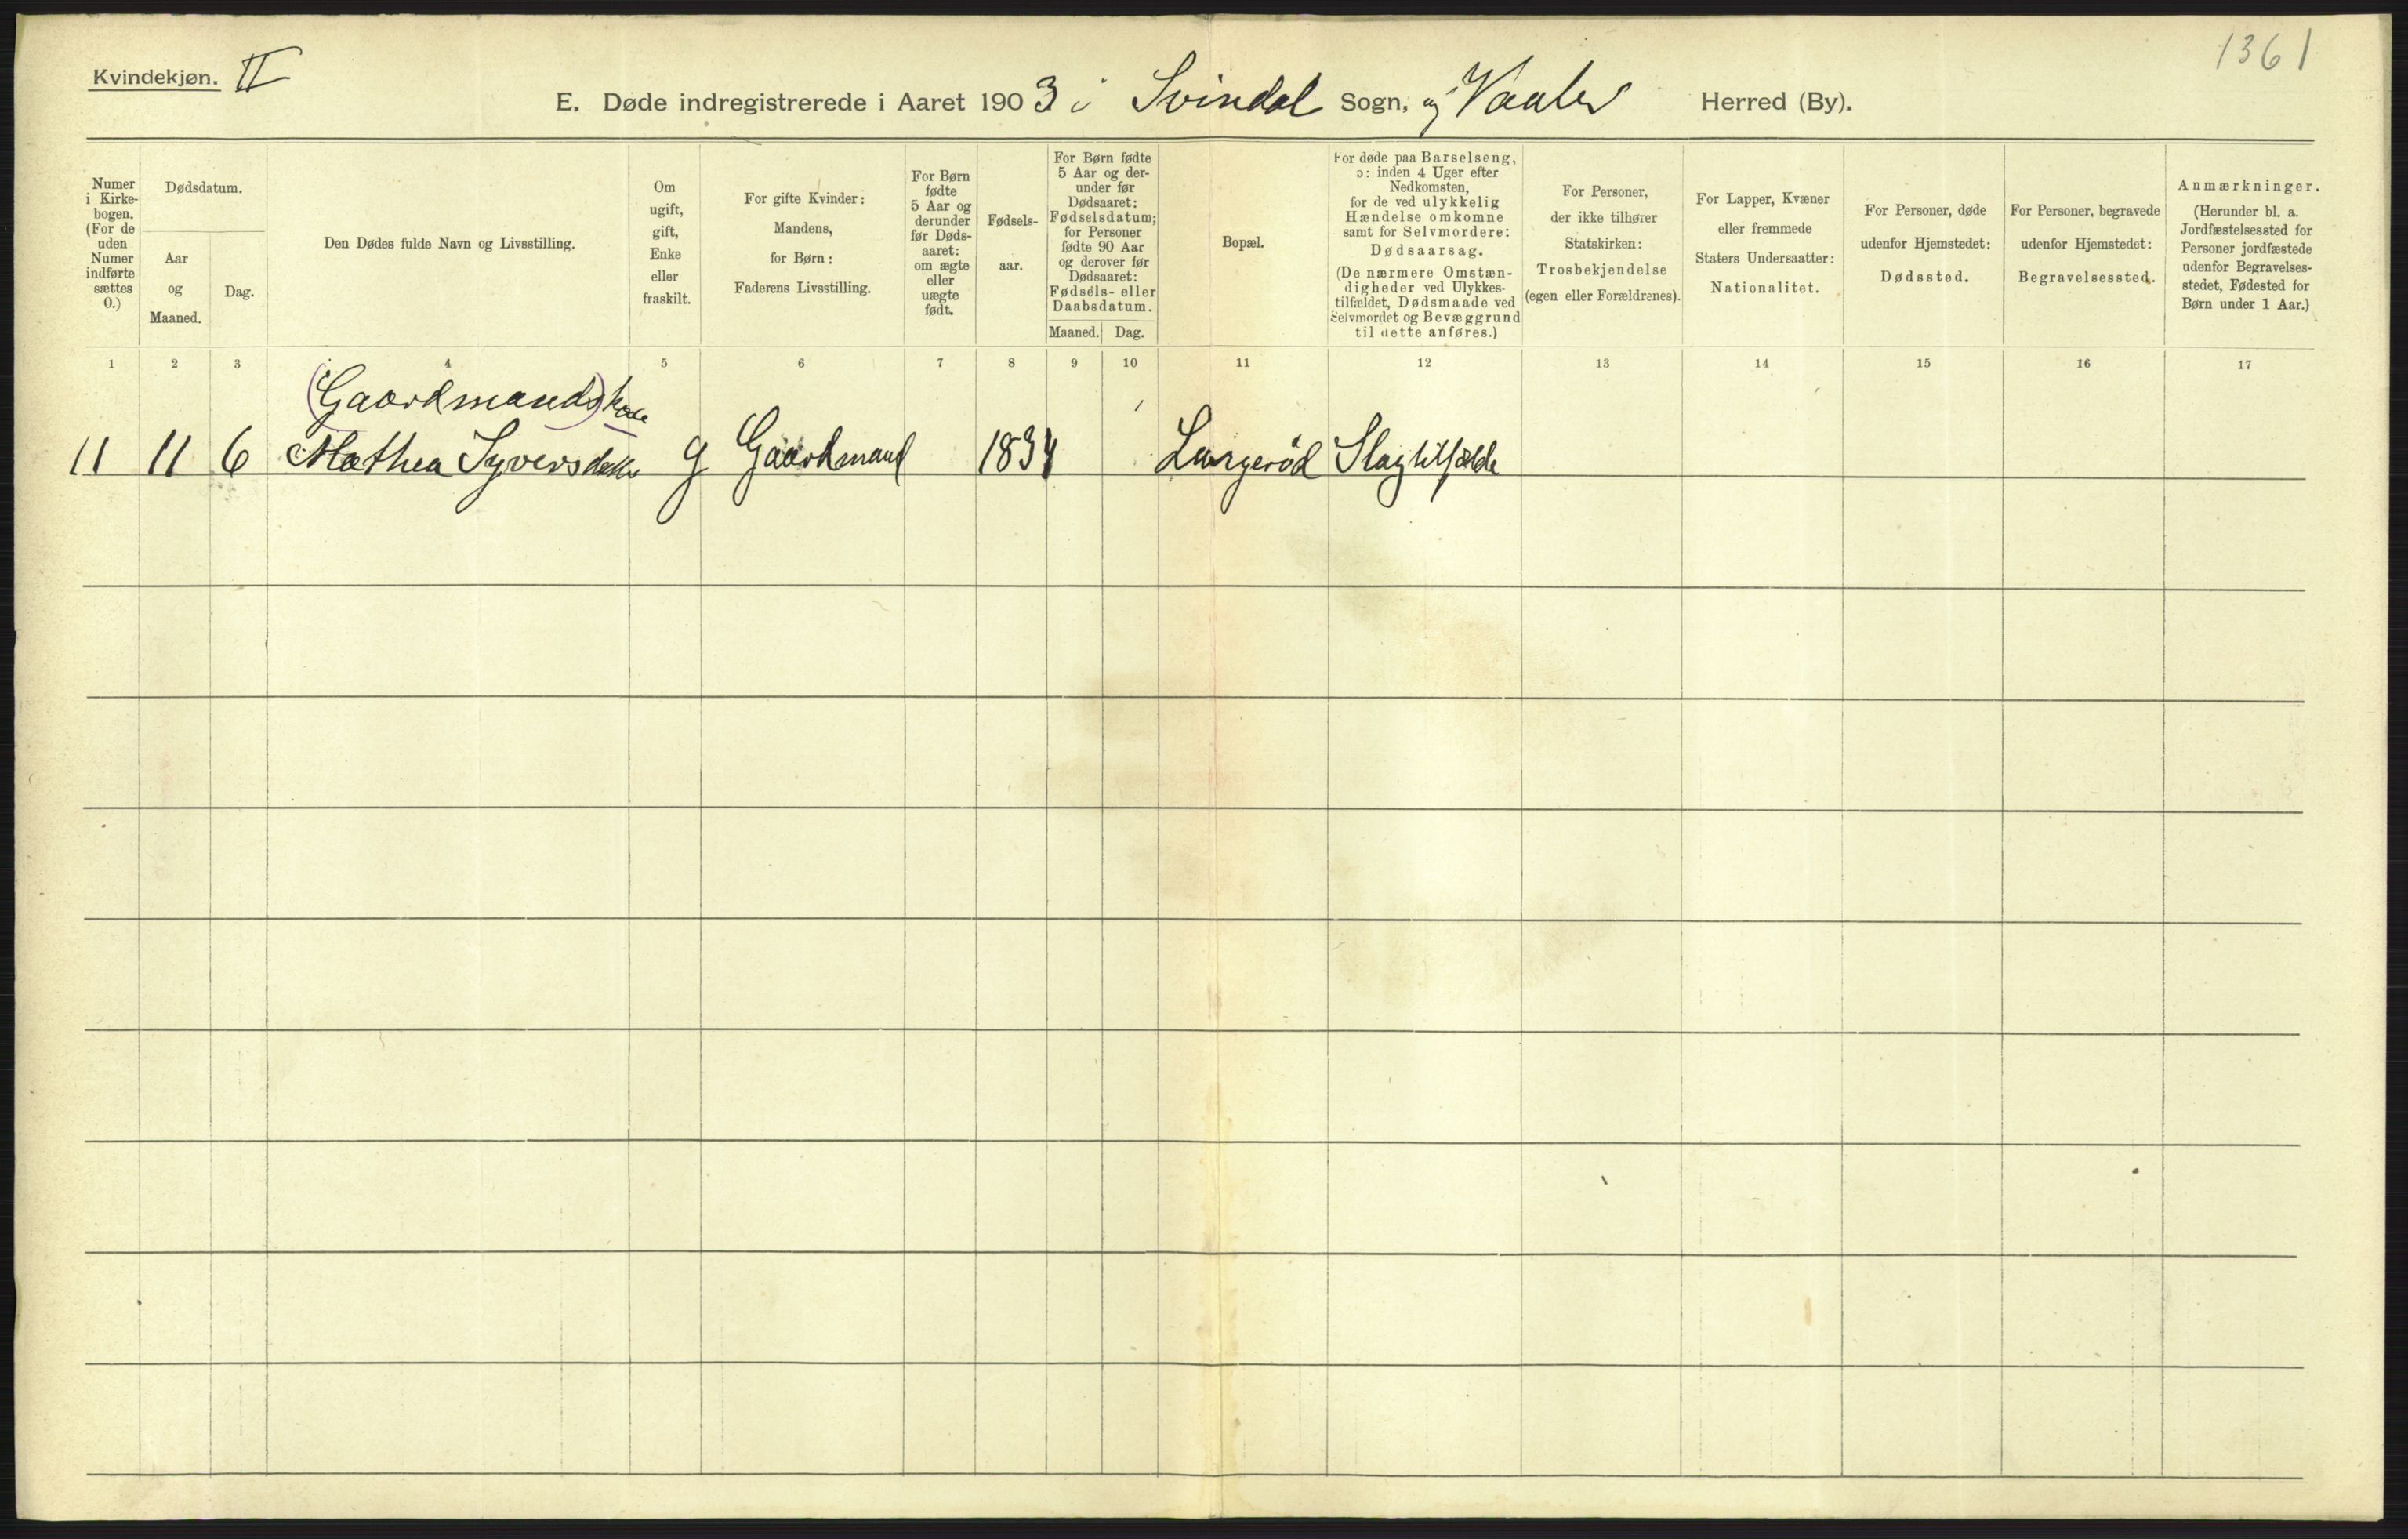 1361
Kvindekjøn. II
E. Døde indregistrerede i Aaret 1903 i Svindal Sogn, og Vaaler Herred (By).
Numer
i Kirke-
bogen.
(For de
uden
Numer
indførte
sættes
0.)
Dødsdatum.
Aar
og
Maaned.
Dag.
Den Dødes fulde Navn og Livsstilling.
Om
ugift,
gift,
Enke
eller
fraskilt.
For gifte Kvinder:
Mandens,
for Børn:
Faderens Livsstilling.
For Børn
fødte
5 Aar og
derunder
før Døds-
aaret:
om ægte
eller
uægte
født.
Fødsels-
aar.
For Børn fødte
5 Aar og der-
under før
Dødsaaret:
Fødselsdatum;
for Personer
fødte 90 Aar
og derover før
Dødsaaret:
Fødsels- eller
Daabsdatum.
Maaned. Dag.
Bopæl.
For døde paa Barselseng,
ɔ: inden 4 Uger efter
Nedkomsten,
for de ved ulykkelig
Hændelse omkomne
samt for Selvmordere:
Dødsaarsag.
(De nærmere Omstæn-
digheder ved Ulykkes-
tilfældet, Dødsmaade ved
Selvmordet og Bevæggrund
til dette anføres.)
For Personer,
der ikke tilhører
Statskirken:
Trosbekjendelse
(egen eller Forældrenes).
For Lapper, Kvæner
eller fremmede
Staters Undersaatter:
Nationalitet.
For Personer, døde
udenfor Hjemstedet:
Dødssted.
For Personer, begravede
udenfor Hjemstedet:
Begravelsessted.
Anmærkninger.
(Herunder bl. a.
Jordfæstelsessted for
Personer jordfæstede
udenfor Begravelses-
stedet, Fødested for
Børn under 1 Aar.)
1 2 3 4 5 6 7 8 9 10 11 12 13 14 15 16 17
(Gaardmands)kone
11 11 6 Mathea Syversdatter g Gaardmand 1834 Langerød Slagtilfælde